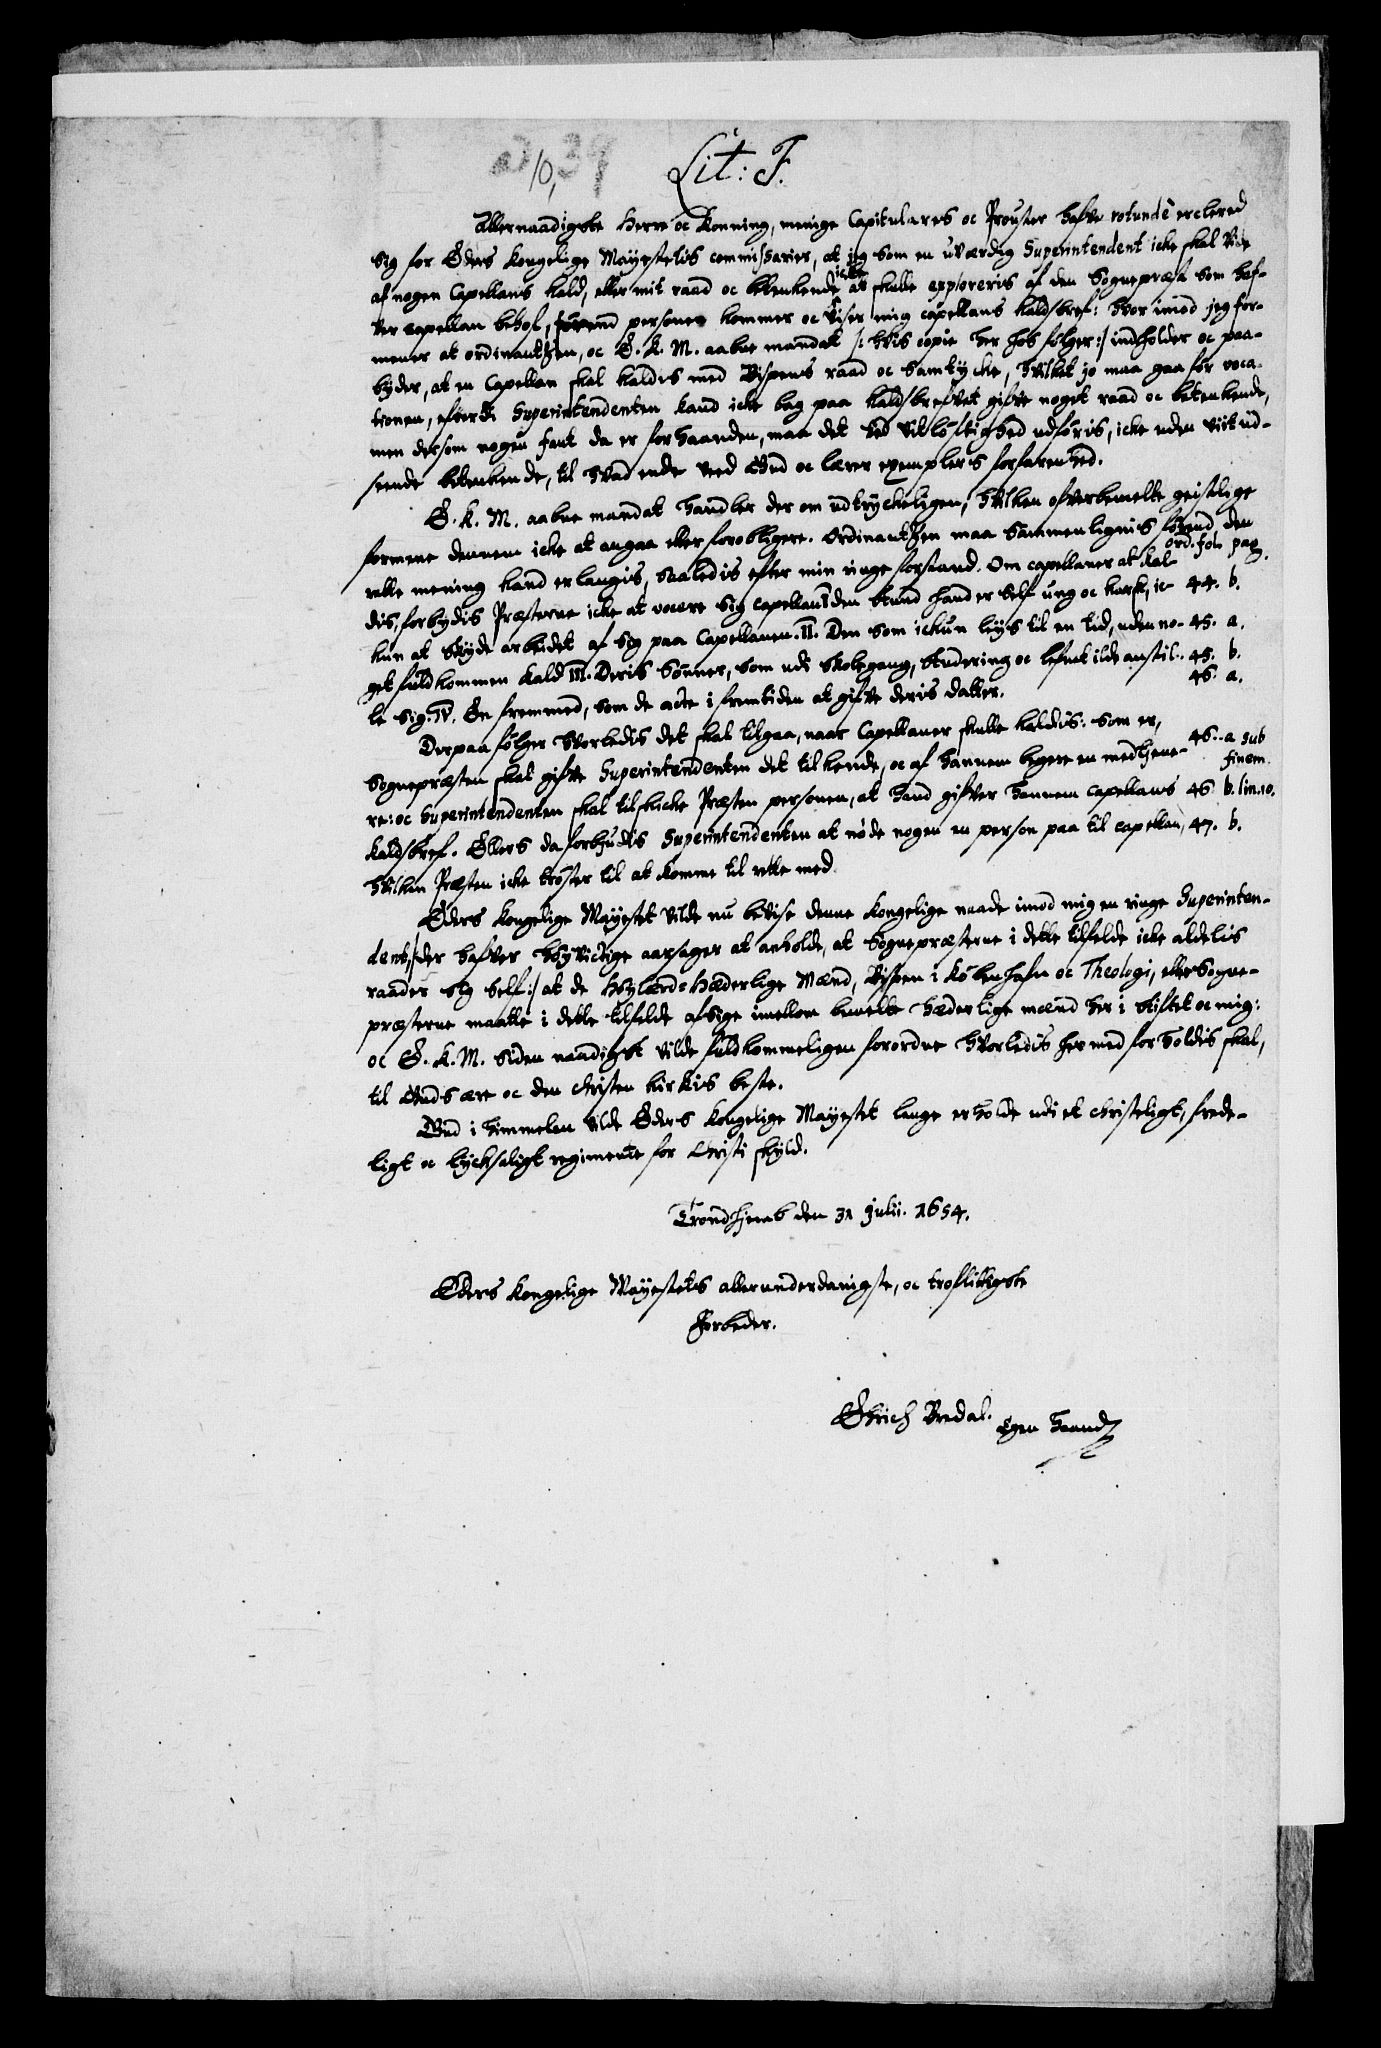 ad 10, 39
Lit: F.
Allernaadigste Herre oc Konning, menige Capitulares oc Prouster hafve rotundè erclered
sig for Eders Kongelige Mayestetis commissarier, at jeg som en uværdig Superintendent icke skal vide
af nogen Capellans kald, eller mit raad oc betenkende icke at skulle exploreris af den Sognepræst som haf-
ver capellan behof, førend personen kommer oc viser mig capellans kaldsbref: hvor imod jeg for-
mener at ordinantzen, oc E. K. M. aabne mandat /: hvis copie her hos følger :/ indholder oc paa-
byder, at en Capellan skal kaldis med Bispens raad oc samtycke, hvilket jo maa gaa for voca-
tionen, efterdi Superintendenten kand icke bag paa kaldsbrefvet gifve noget raad oc betenkende,
men dersom nogen faut da er forhaanden, maa det ved vitløftighed udføris, icke uden viit ud-
seende betenkende, til hvad ende veed Gud oc lærer exemplers forfarenhed.
E. K. M. aabne mandat handler der om udtryckeligen, hvilken ofverbemelte geistlige
formene dennem icke at angaa eller forobligere. Ordinantzen maa sammenlignis førend den
rette mening kand erlangis, saaledis efter min ringe forstand. Om capellaner at kal- ord. fol. pag.
dis, forbydis Præsterne icke at vocere sig capellan I den stund hand er self ung oc karsk, ic- 44. b.
kun at skyde arbeidet af sig paa Capellanen. II. Den som ickun leys til en tid, uden no- 45. a.
get fuldkommen kald III. Deris Sønner, som udi skolegang, studering oc lefnet ilde anstil- 45. b.
le sig. IV. En fremmed, som de acte i fremtiden at gifve deris datter. 46. a.
Derpaa følger hvorledis det skal tilgaa, naar Capellaner skulle kaldis: som er,
Sognepræsten skal gifve Superintendenten det tilkende, oc af hannem begere en medtjene- 46. a sub finem.
re: oc Superintendenten skal tilskicke Præsten personen, at hand gifver hannem capellans 46 b. lin. 10.
kaldsbref. Ellers da forbjudis Superintendenten at nøde nogen en person paa til capellan, 47. b.
hvilken Præsten icke trøster til at komme til rette med.
Eders Kongelige Mayestet vilde nu bevise denne kongelige naade imod mig en ringe Superinten-
dent, /: der hafver høyvictige aarsager at anholde, at Sognepræsterne i dette tilfelde icke aldelis
raader sig self :/ at de Høylærde Hæderlige Mænd, Bispen i Københafn oc Theologi, eller Sogne-
præsterne maatte i dette tilfelde afsige imellom bemelte hæderlige mænd her i stiftet oc mig:
oc E. K. M. siden naadigst vilde fuldkommeligen forordne hvorledis hermed forholdis skal,
til Guds ære oc den christen kirkis beste.
Gud i himmelen vilde Eders Kongelige Mayestet lange erholde udi et christeligt, frede-
ligt oc lycksaligt regimente for Christi skyld.
Trondhjemb den 31 julii. 1654.
Eders Kongelige Mayestets allerunderdanigste, oc troflittigste
Forbeder.
Erich Bredal. Egen Haand